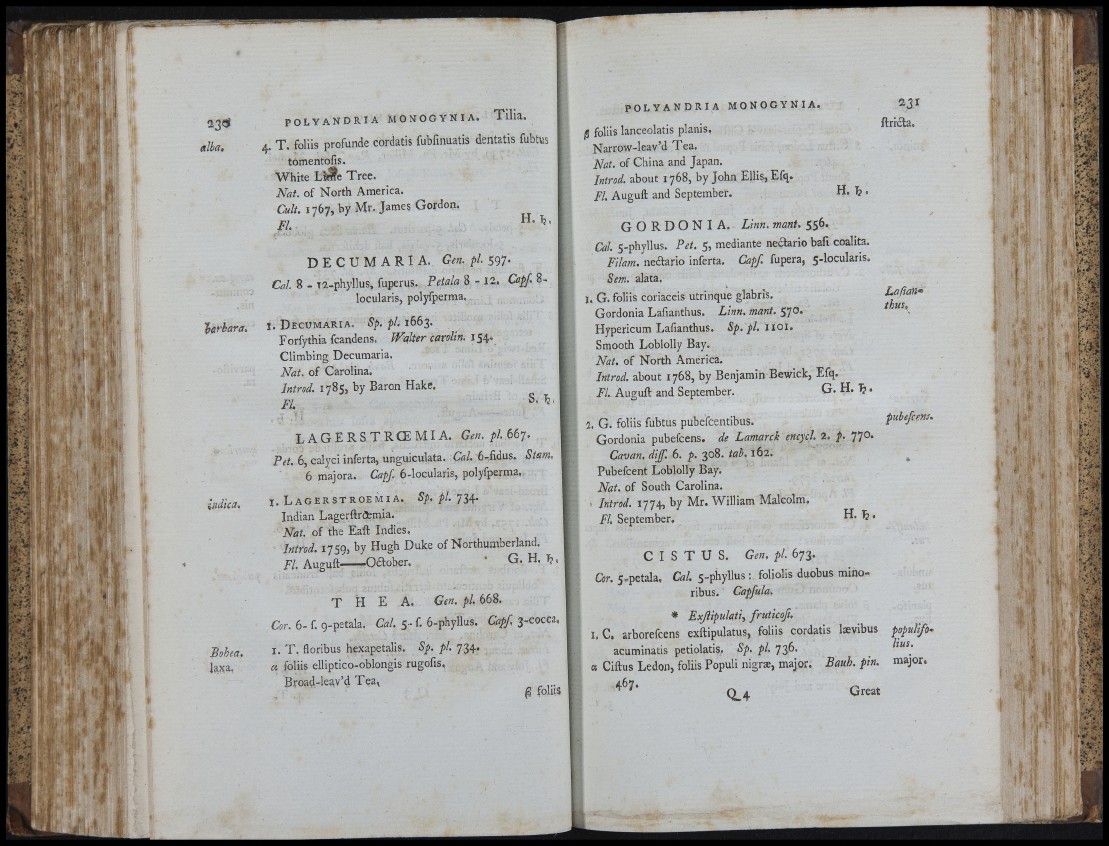 230 POLYANDRIA MONOGYNIA. Tilia.
alba. 4. T. foliis profunde cordatis ſubſinuatis dentatis ſubtus
tomentoſis.
White Lime Tree.
Nat. of North America.
Cult. 1767, by Mr. James Gordon.
Fl. H. ♄.
DECUMARIA. Gen. pl. 597.
Cal. 8 - 12-phyllus, ſuperus. Petala 8 - 12. Capſ. 8-
locularis, polyſperma.
barbara. 1. DECUMARIA. Sp. pl. 1663.
Forſythia ſcandens. Walter carolin. 154.
Climbing Decumaria.
Nat. of Carolina.
Introd. 1785, by Baron Hake.
Fl. S. ♄.
LAGERSTRŒMIA. Gen. pl. 667.
Pet. 6, calyci inſerta, unguiculata. Cal. 6-fidus. Stam.
6 majora. Capſ. 6-locularis, polyſperma.
indica. 1. LAGERSTROEMIA. Sp. pl. 734.
Indian Lagerſtrœmia.
Nat. of the Eaſt Indies.
Introd. 1759, by Hugh Duke of Northumberland.
Fl. Auguſt——October. G. H. ♄.
THEA. Gen. pl. 668.
Cor. 6- ſ. 9-petala. Cal. 5- ſ. 6-phyllus. Capſ. 3-cocca.
Bohea. 1. T. floribus hexapetalis. Sp. pl. 734.
laxa. α foliis elliptico-oblongis rugoſis.
Broad-leav'd Tea.
β foliis
POLYANDRIA MONOGYNIA. 231
β foliis lanceolatis planis. ſtricta.
Narrow-leav'd Tea.
Nat. of China and Japan.
Introd. about 1768, by John Ellis, Eſq.
Fl. Auguſt and September. H. ♄.
GORDONIA. Linn. mant. 556.
Cal. 5-phyllus. Pet. 5, mediante nectario baſi coalita.
Filam. nectario inſerta. Capſ. ſupera, 5-locularis.
Sem. alata.
1. G. foliis coriaceis utrinque glabris. Laſian-
Gordonia Laſianthus. Linn. mant. 570. thus.
Hypericum Laſianthus. Sp. pl. 1101.
Smooth Loblolly Bay.
Nat. of North America.
Introd. about 1768, by Benjamin Bewick, Eſq.
Fl. Auguſt and September. G. H. ♄.
2. G. foliis ſubtus pubeſcentibus. pubeſcens.
Gordonia pubeſcens. de Lamarck encycl. 2. p. 770.
Cavan. diſſ. 6. p. 308. tab. 162.
Pubeſcent Loblolly Bay.
Nat. of South Carolina.
Introd. 1774, by Mr. William Malcolm.
Fl. September. H. ♄.
CISTUS. Gen. pl. 673.
Cor. 5-petala. Cal. 5-phyllus: foliolis duobus mino-
ribus. Capſula.
* Exſtipulati, fruticoſi.
1. C. arboreſcens exſtipulatus, foliis cordatis lævibus populifo-
acuminatis petiolatis. Sp. pl. 736. lius.
α Ciſtus Ledon, foliis Populi nigræ, major. Bauh. pin. major.
467.
Q 4 Great